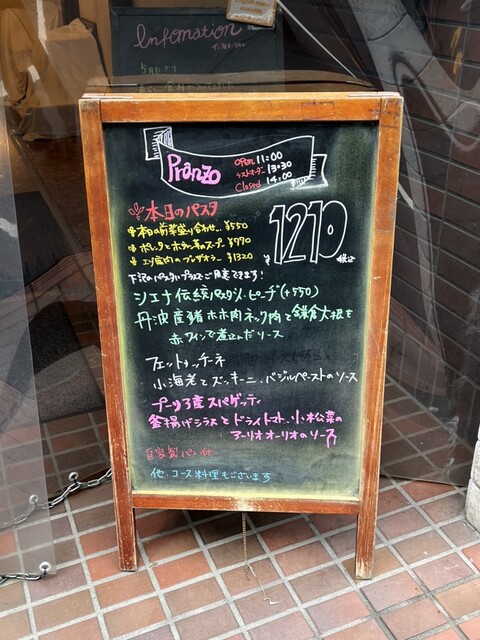 Infomation
5月より
Pranzo
open 11:00
ラストオーダー 13:30
Closed 14:00
本日のパスタ
¥1210 税込
本日の前菜盛り合わせ... ¥550
ポレンタとホタテ貝のスープ ¥770
エゾ鹿肉のブレザオラ... ¥1320
下記のパスタにプラスでご用意できます!
シエナ伝統パスタ ピーチ (+550)
丹波産猪ホホ肉ネック肉と鎌倉大根を
赤ワインで煮込んだソース
フェットゥッチーネ
小海老とズッキーニ、バジルペーストのソース
プーリア産スパゲッティ
釜揚げシラスとドライトマト、小松菜の
アーリオオーリオのソース
自家製パン付
他、コース料理もございます